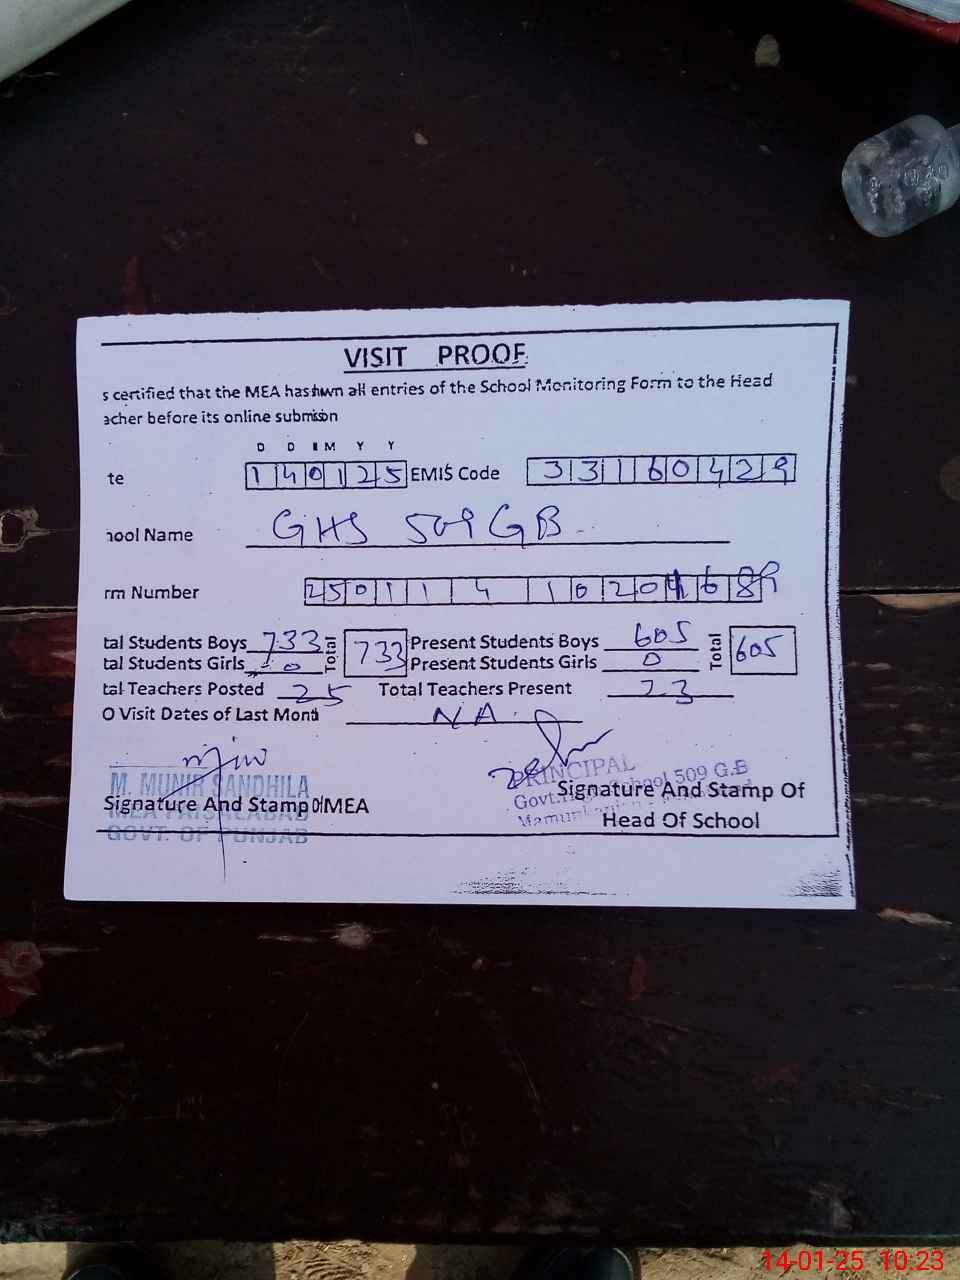 VISIT PROOF
s certified that the MEA has hwn all entries of the School Monitoring Form to the Head
acher before its online submisson
D D M M Y Y
te 140125 EMIS Code 33160429
hool Name GHS 509 GB
rm Number 25011 4 1020
tal Students Boys 733 Total 733 Present Students Boys 605 Total 605
tal Students Girls 0 Present Students Girls 0
tal Teachers Posted 25 Total Teachers Present 23
O Visit Dates of Last Month NA
M. MUNIR SANDHILA
MEA FAISALABAD
GOVT. OF PUNJAB
Signature And Stamp Of MEA
PRINCIPAL
Govt. School 509 G.B
Signature And Stamp Of
Head Of School
14-01-25 10:23